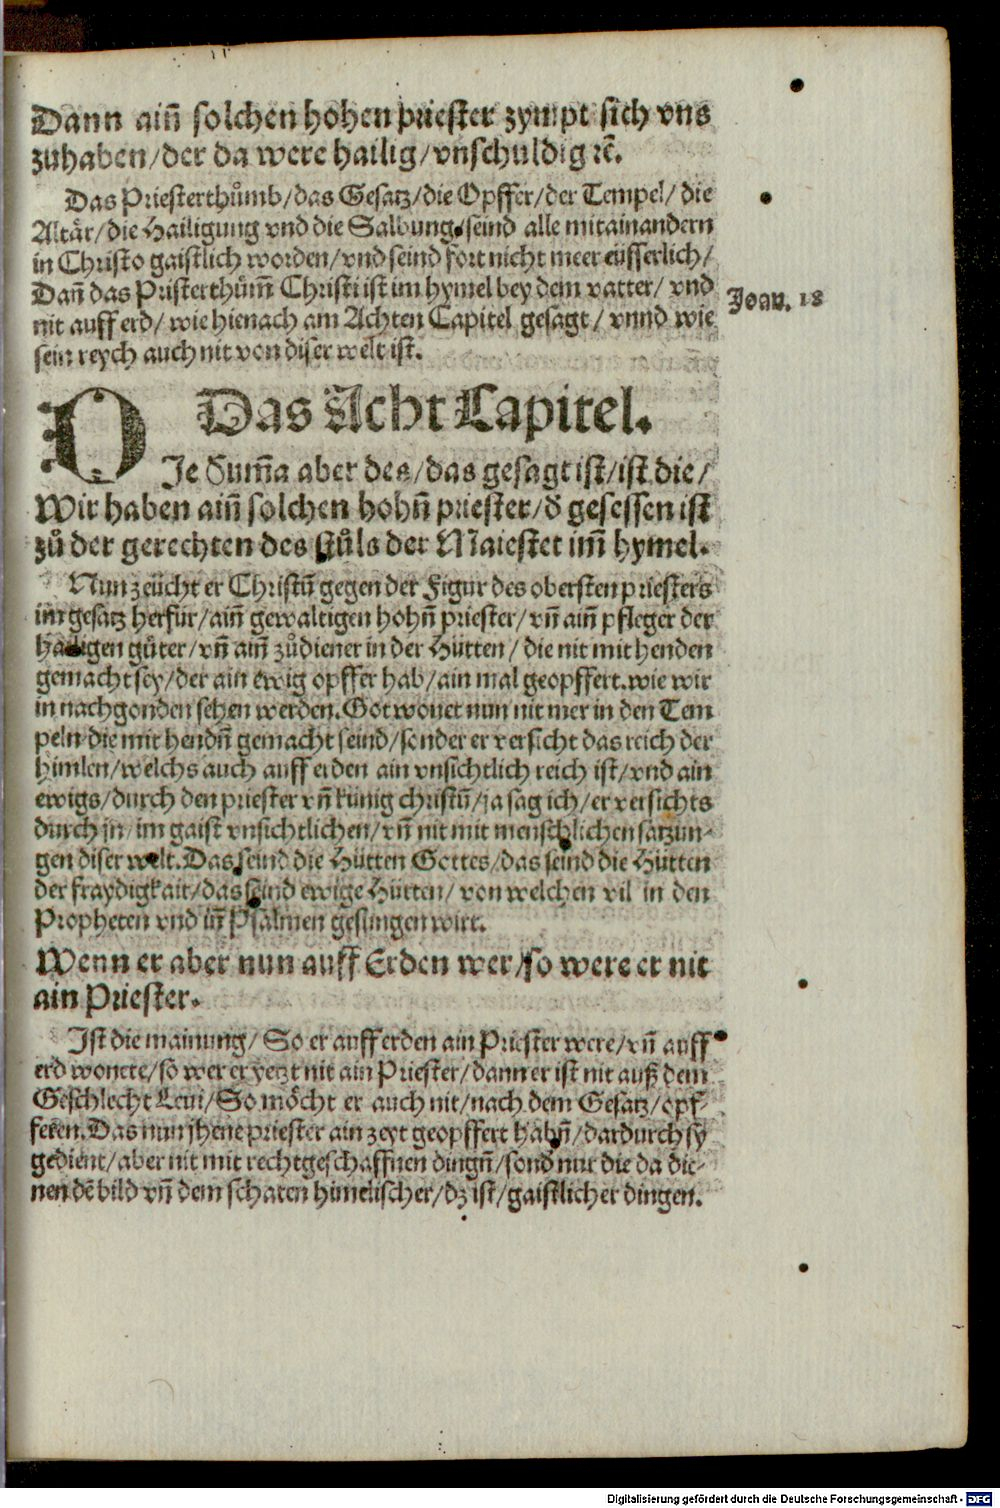 Dann aiñ solchen hohen priester zympt sich vns
zuhaben/der da were hailig/vnschuldig ꝛc̃.
Das Priesterthůmb/das Gesatz/die Opffer/der Tempel/die
Altår/die Hailigung vnd die Salbung/seind alle mitainandern
in Christo gaistlich worden/vnd seind fort nicht meer eüsserlich/
Dañ das Pristerthům̃ Christi ist im hymel bey dem vatter/vnd
nit auff erd/wie hienach am Achten Capitel gesagt/vnnd wie
sein reych auch nit von diser welt ist.
Joan. 18
Das Acht Capitel.
DJe Sum̃a aber des/das gesagt ist/ist die/
Wir haben aiñ solchen hohñ priester/ď gesessen ist
zů der gerechten des stůls der Maiestet im̃ hymel.
Nun zeücht er Christũ gegen der Figur des obersten priesters
im gesatz herfür/aiñ gewaltigen hohñ priester/vñ aiñ pfleger der
hailigen güter/vñ aiñ zůdiener in der Hütten/die nit mit henden
gemacht sey/der ain ewig opffer hab/ain mal geopffert.wie wir
in nachgonden sehen werden.Got wonet nun nit mer in den Tem
peln die mit hendñ gemacht seind/sonder er versicht das reich der
himlen/welchs auch auff erden ain vnsichtlich reich ist/vnd ain
ewigs/durch den priester vñ künig christũ/ja sag ich/er versichts
durch jn/im gaist vnsichtlichen/vñ nit mit menschlichen satzun-
gen diser welt.Das seind die Hütten Gottes/das seind die Hütten
der fraydigkait/das seind ewige Hütten/von welchen vil in den
Propheten vnd iñ Psalmen gesungen wirt.
Wenn er aber nun auff Erden wer/so were er nit
ain Priester.
Jst die mainung/So er auff erden ain Priester were/vñ auff
erd wonete/so wer er yetzt nit ain Priester/dann er ist nit auß dem
Geschlecht Leui/So möcht er auch nit/nach dem Gesatz/opf-
feren.Das nun jhene priester ain zeyt geopffert habñ/dardurch sy
gedient/aber nit mit rechtgeschaffnen dingñ/sonď nur die da die-
nen dẽ bild vñ dem schaten himelischer/dz ist/gaistlicher dingen.
Digitalisierung gefördert durch die Deutsche Forschungsgemeinschaft - DFG